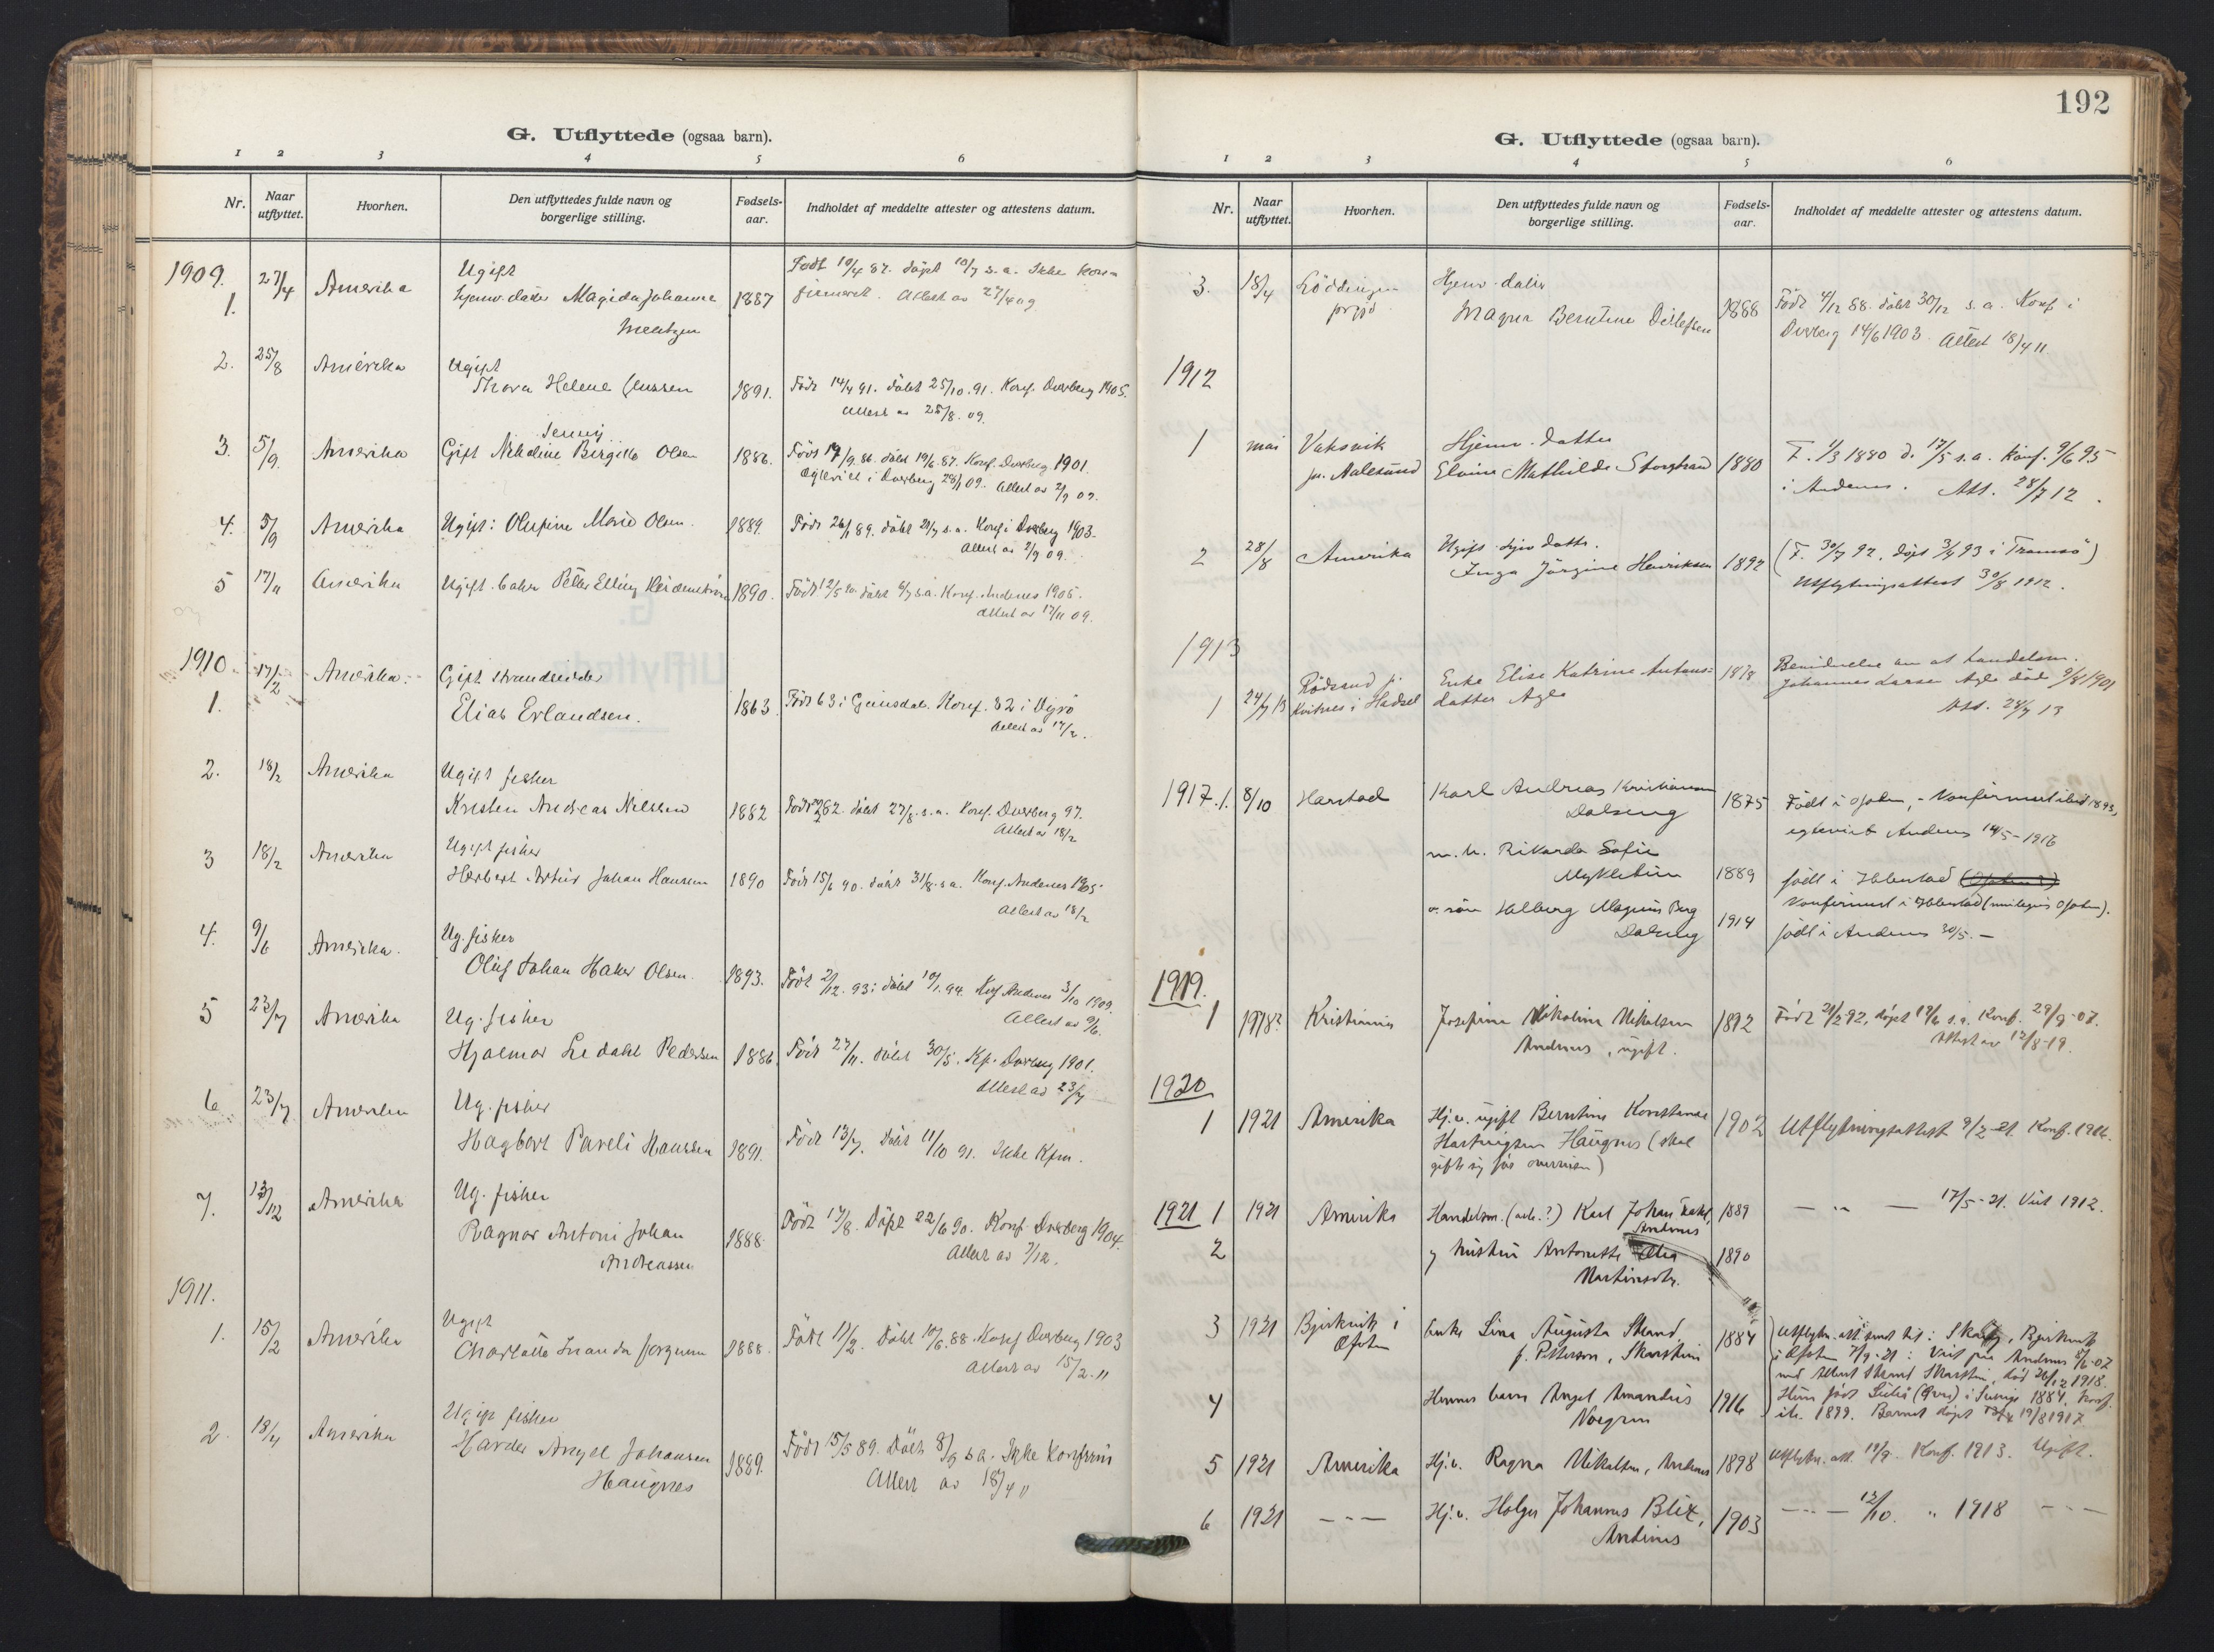 G. Utflyttede (ogsaa barn).
1 2 3 4 5 6
Nr. Naar utflyttet. Hvorhen. Den utflyttedes fulde navn og borgerlige stilling. Fødselsaar. Indholdet af meddelte attester og attestens datum.
1909. 27/4 Amerika Ugift Født 19/4 87. døpt 10/7 s.a. Ikke kon-
1. hjemv. datter Magida Johanna 1887 firmeret. Attest av 27/4 09
2. 25/8 Amerika Ugift
Thora Helene Jenssen 1891. Født 14/4 91. døbt 25/10.91. Konf. Dverberg 1905.
Attest av 25/8.09.
Jenny
3. 5/9. Amerika Gift Nikoline Birgitte Olsen 1886. Født /9.86. døbt 19/6.87. Konf. Dverberg 1901.
Dverberg 09. Attest av 2/9 09.
4. 5/9 Amerika Ugift: Olufine Marie Olsen. 1889. Født 26/1 89. døbt 21/7 s.a. Konf. i Dverberg 1903.
Attest av 2/9 09.
5 17/11 Amerika Ugift. Peter Elling 1890. Født 12/5 90. døbt 6/7 s.a. Konf. Andenes 1905.
Attest av 17/11 09.
1910. 17/2 Amerika. Gift strandsidder
1. Elias Erlandsen. 1863 Født 63 i Konf. 82 i
Attest av 17/2.
2. 18/2 Amerika Ugift fisker
Kristen Andreas Nilssen 1882 Født 82. døbt 27/8. s.a. Konf. Dverberg 97.
Attest av 18/2
3 18/2 Amerika Ugift fisker
Herbert Artur Johan Hansen 1890 Født 15/6 90. døbt 31/8. s.a. Konf. Andenes 1905.
Attest av 18/2
4. 9/6 Amerika. Ug. fisker
Oluf Johan Haker Olsen. 1893. Født 2/12. 93; døbt 10/1.94. Konf Andenes 3/10 1909.
Attest av 9/6.
5 23/7 Amerika Ug. fisker
Hjalmar Ledahl Pedersen 1886. Født 27/11. døbt 30/5. Kf. Dverberg 1901.
Attest av 23/7
6 23/7 Amerika Ug. fisker
Hagbart Pareli Hanssen 1891. Født 13/7. Døbt 11/10 91. Ikke Kfm.
7. 13/12 Amerika Ug. fisker
Ragnar Antoni Johan 1888. Født 17/8. Døpt 22/6 90. Konf. Dverberg 1904.
Andreassen Attest av 7/12.
1911.
1. 15/2 Amerika Ugift
Charlotte 1888. Født 11/2. Døbt 10/6.88. Konf Dverberg 1903
Attest av 15/2.11
2. 18/4 Amerika Ugift fisker
Harder Angel Johansen 1889. Født 15/5 89. Døbt 8/9 s.a. Ikke Konfirm
Haugnes Attest av 18/4 11
192
G. Utflyttede (ogsaa barn).
1 2 3 4 5 6
Nr. Naar utflyttet. Hvorhen. Den utflyttedes fulde navn og borgerlige stilling. Fødselsaar. Indholdet af meddelte attester og attestens datum.
3. 18/4 Løddingen Hjemv. datter
prgjd Magna Berntine Detlefsen 1888 Født 4/12 88. døbt 30/12 s.a. Konf i
Dverberg 14/6 1903. Attest 18/4 11.
1912
1 mai Vaksvik Hjemv. datter
pr. Aalesund Elvine Mathilde Storstrand 1880 F. 1/3 1880 d. 17/5 s.a. Konf. 9/6 95
i Andenes. Att. 28/7 12.
2 28/8 Amerika Ugift hjv datter.
Inga Jørgine Henriksen 1892 (F. 30/7 92, døpt 3/4 93 i Tromsø)
Utflytningsattest 30/8 1912.
1913
Rødsand p. Enke Elise Katrine Antons= 1878 Bevidnelse om at handelsm.
1 24/7 13 Kvitnes i Hadsel datter Agle Johannes Larsen Agle død 9/8 1901
Att. 24/7 13
1917. 1. 8/10 Harstad Karl Andreas Kristiansen 1875 Født i Ofoten, - Konfirmert ibid 1893,
Dalseng egteviet Andenes 14/5 - 1916
m. h. Rikarda Sofie
Myklebun 1889 født i Ibbestad (Ofoten)
Konfirmert i Ibbestad (muligens Ofoten).
o. søn Halberg Magnus Berg 1914 født i Andenes 30/5. -
Dalseng
1919.
1 1918? Kristiania Josefine Nikoline Nikolsen 1892 Født 21/2 92, døpt 19/6 s.a. Konf. 29/9-07.
Andenes, ugift. Attest av 12/8-19.
1920
1 1921 Amerika Hj.v. ugift Berntine Konstanse 1902 Utflytningsattest 9/2-21. Konf. 1916.
Hartvigsen Haugnes (skal
gifte sig før overreisen)
1921 1 1921 Amerika Handelsm. (arb.?) Karl Johan 1889 — " — 17/5-21. Viet 1912.
Andenes
2 og hustru Antonette 1890
Martinsdtr.
3 1921 Bjerkvik i enke Lina Augusta Strand 1884 Utflytn.att. sendt til: Bjerkvik
Ofoten f. Petterson, Skarstein i Ofoten 7/9-21: Viet paa Andenes 07
med Albert Strand Skarstein, død 26/12 1918.
4 Hennes barn Angel Amandus 1916 Hun født i Sverige 1884. Konf.
Norgren ib. 1899. Barnet døpt 19/8 1917
5 1921 Amerika Hj.v. Ragna Nikolsen, Andenes 1898 Utflytn. att. 19/9. Konf. 1913. Ugift.
6 1921 - - - Hj.v. Holger Johannes Blix, 1903 - - - 12/10. " 1918 - - -
Andenes